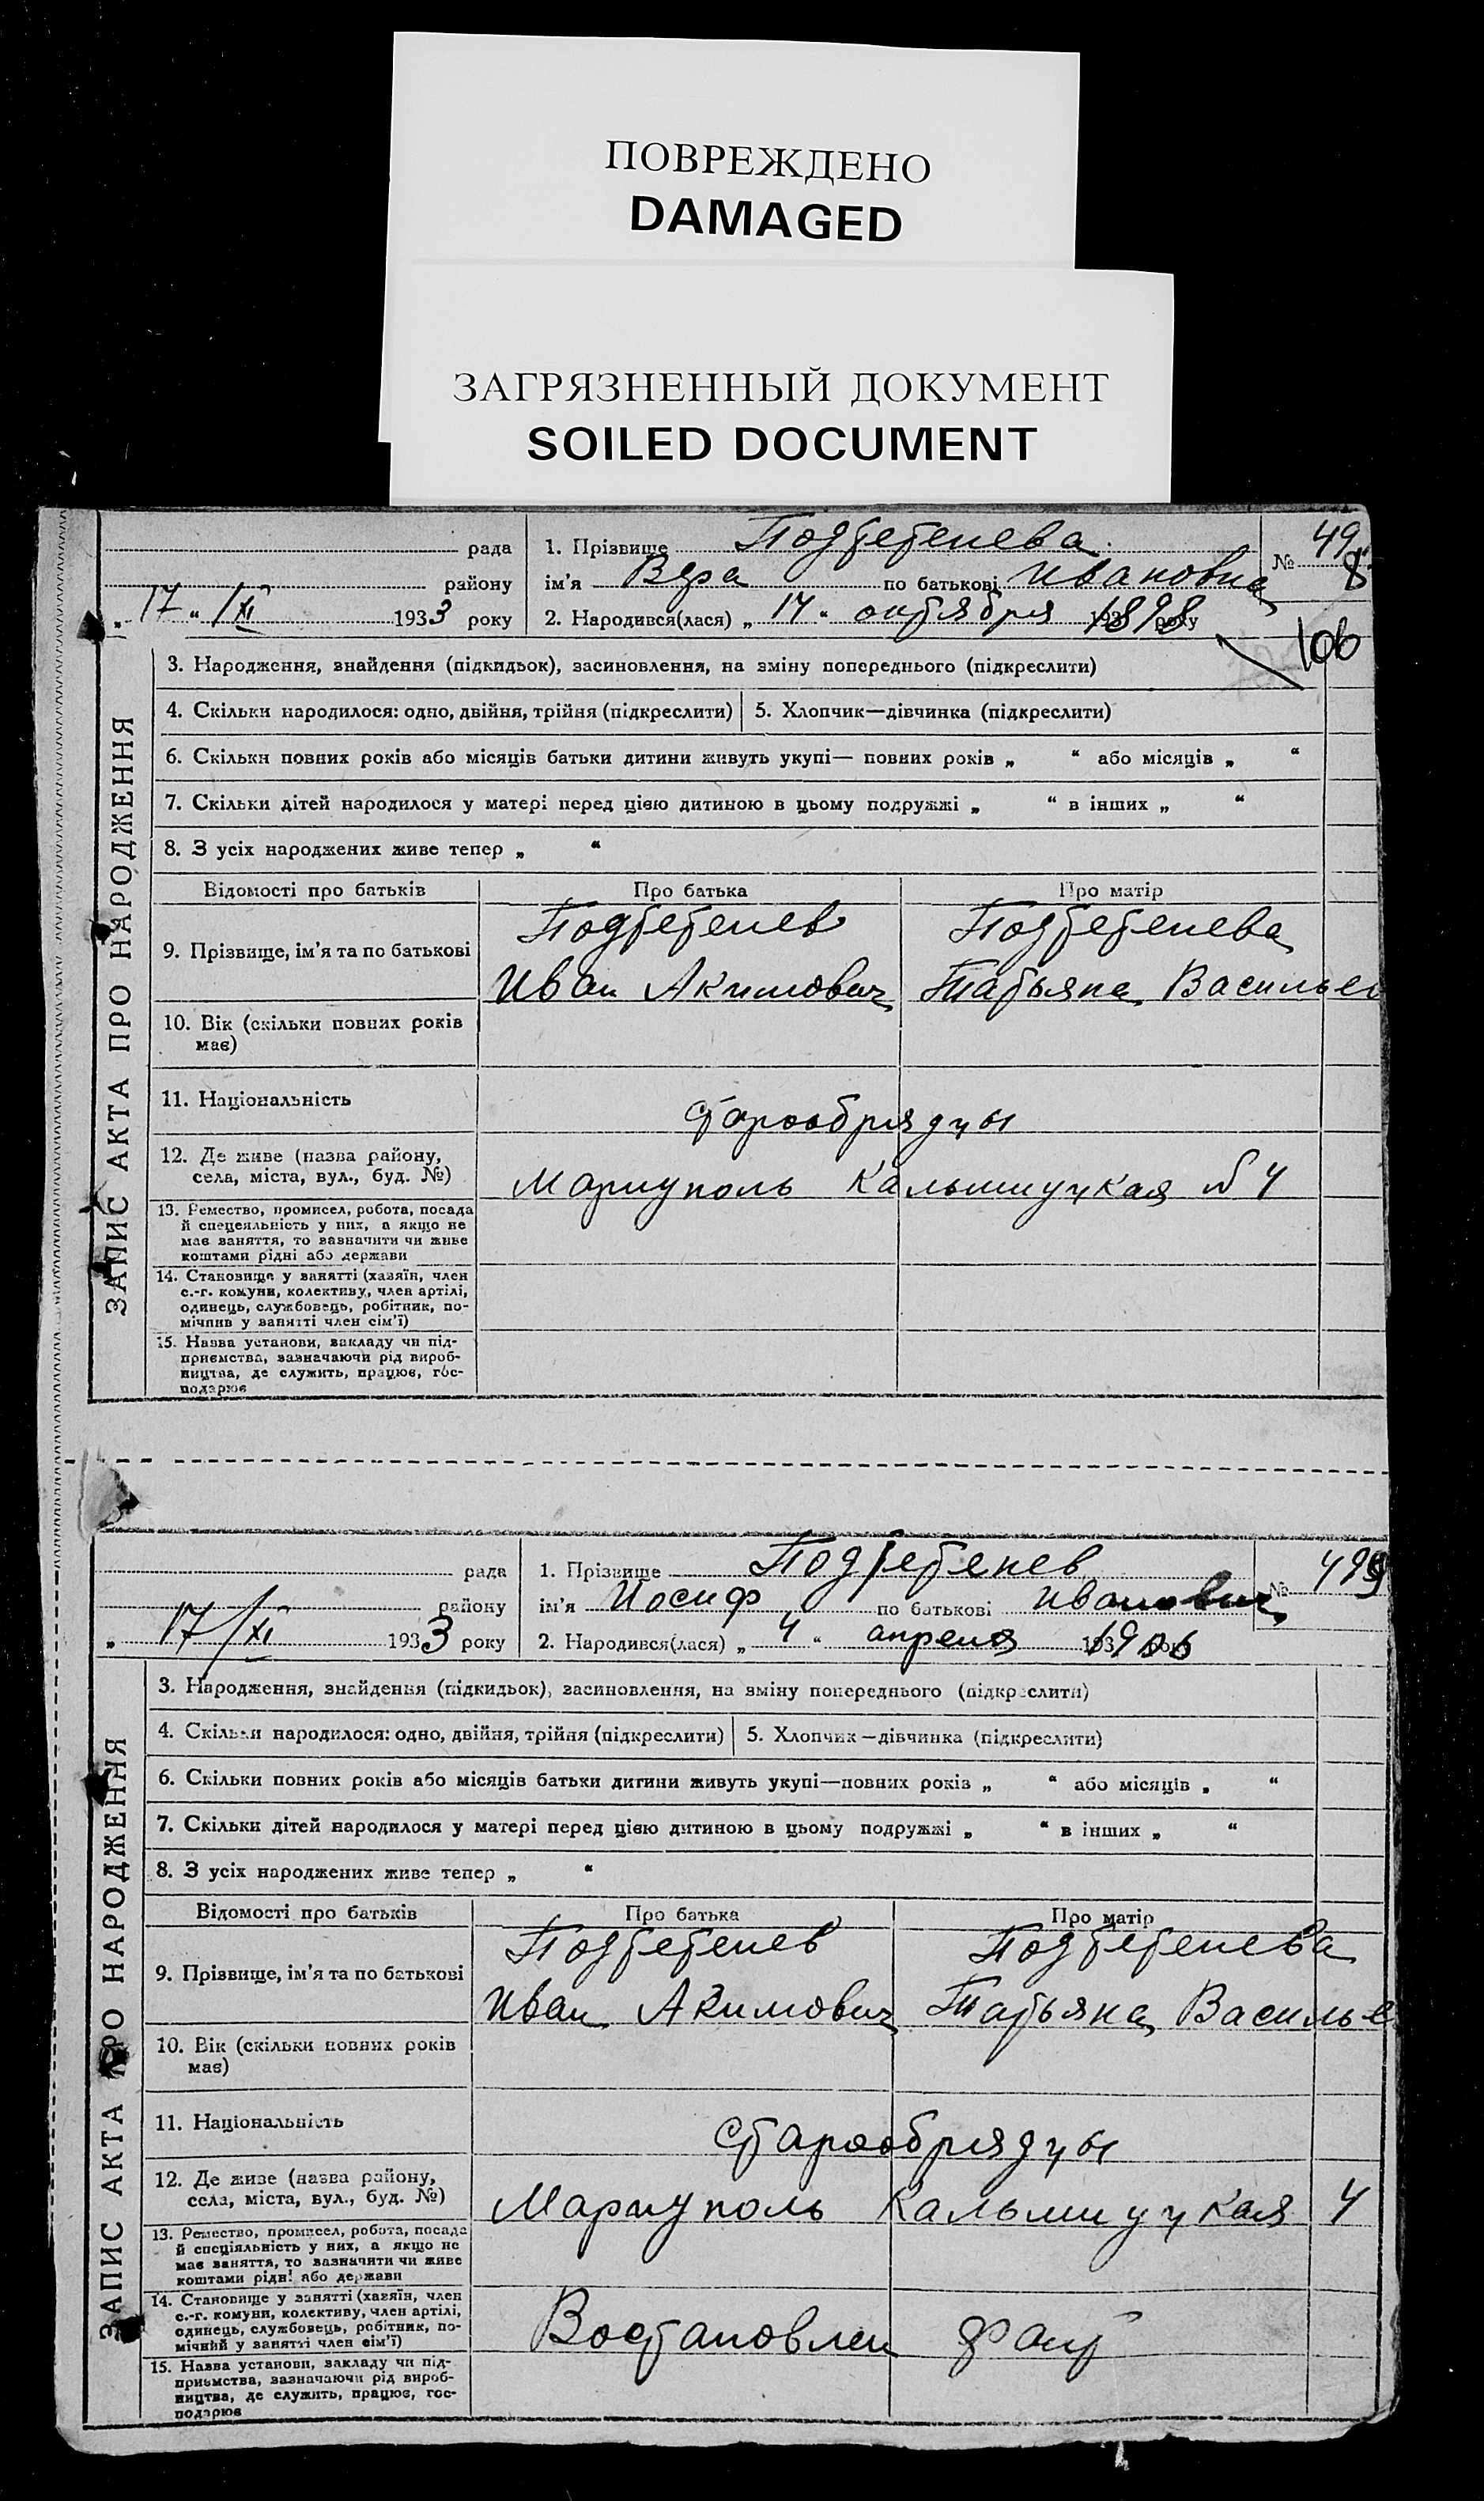 ПОВРЕЖДЕНО
DAMAGED
ЗАГРЯЗНЕННЫЙ ДОКУМЕНТ
SOILED DOCUMENT
рада
1. Прізвище
№ 498
району
ім'я Вера по батькові Ивановна
„ 17 “ /XI 1933 року
2. Народився(лася) „ 14 “ октября 1898 року
106
ЗАПИС АКТА ПРО НАРОДЖЕННЯ
3. Народження, знайдення (підкидьок), засиновлення, на зміну попереднього (підкреслити)
4. Скільки народилося: одно, двійня, трійня (підкреслити)
5. Хлопчик—дівчинка (підкреслити)
6. Скільки повних років або місяців батьки дитини живуть укупі— повних років „ “ або місяців „ “
7. Скільки дітей народилося у матері перед цією дитиною в цьому подружжі „ “ в інших „ “
8. З усіх народжених живе тепер „ “
Відомості про батьків
Про батька
Про матір
9. Прізвище, ім'я та по батькові
Иван Акимович
Татьяна Василье
10. Вік (скільки повних років
має)
11. Національність
старообрядцы
12. Де живе (назва району,
села, міста, вул., буд. №)
Мариуполь Кальмиуцкая № 4
13. Ремество, промисел, робота, посада
й спецеяльність у них, а якщо не
має заняття, то зазначити чи живе
коштами рідні або держави
14. Становище у занятті (хазяїн, член
с.-г. комуни, колективу, член артілі,
одинець, службовець, робітник, по-
мічнив у занятті член сім'ї)
15. Назва установи, закладу чи під-
приємства, зазначаючи рід вироб-
ництва, де служить, працює, гос-
подарює
рада
1. Прізвище
№ 499
району
ім'я Иосиф по батькові Иванович
„ 17/XI 1933 року
2. Народився(лася) „ 4 “ апреля 1906
ЗАПИС АКТА ПРО НАРОДЖЕННЯ
3. Народження, знайдення (підкидьок), засиновлення, на зміну попереднього (підкреслити)
4. Скільки народилося: одно, двійня, трійня (підкреслити)
5. Хлопчик—дівчинка (підкреслити)
6. Скільки повних років або місяців батьки дитини живуть укупі—повних років „ “ або місяців „ “
7. Скільки дітей народилося у матері перед цією дитиною в цьому подружжі „ “ в інших „ “
8. З усіх народжених живе тепер „ “
Відомості про батьків
Про батька
Про матір
9. Прізвище, ім'я та по батькові
Иван Акимович
Татьяна Василье
10. Вік (скільки повних років
має)
11. Національність
старообрядцы
12. Де живе (назва району,
села, міста, вул., буд. №)
Мариуполь Кальмиуцкая 4
13. Ремество, промисел, робота, посада
й спеціяльність у них, а якщо не
має заняття, то зазначити чи живе
коштами рідні або держави
14. Становище у занятті (хазяїн, член
с.-г. комуни, колективу, член артілі,
одинець, службовець, робітник, по-
мічний у занятті член сім'ї)
Востановлен
15. Назва установи, закладу чи під-
приємства, зазначаючи рід вироб-
ництва, де служить, працює, гос-
подарює